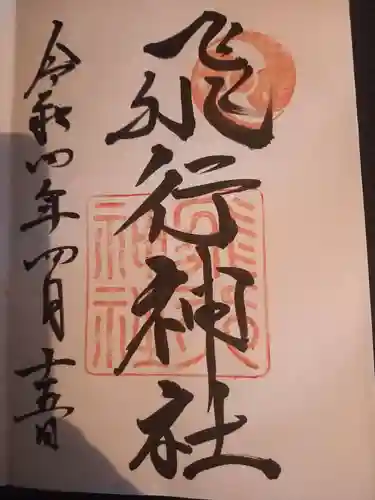 飛行神社
令和四年四月十五日
飛行
神社